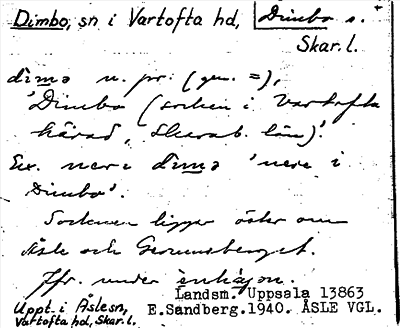 Dimbo, sn i Vartofta hd, Dimbo s.
Skar. l.
dimə n. pr. (gen. =),
'Dimbo (socken i Vartofta
härad, Skarab. län)'.
Ex. nere i dimə 'nere i
Dimbo'.
Socknen ligger öster om
Åsle och Gerumsberget.
Jfr. under
Landsm. Uppsala 13863
Uppt. i Åslesn,
E.Sandberg.1940. ÅSLE VGL.
Vartofta hd, Skar. l.